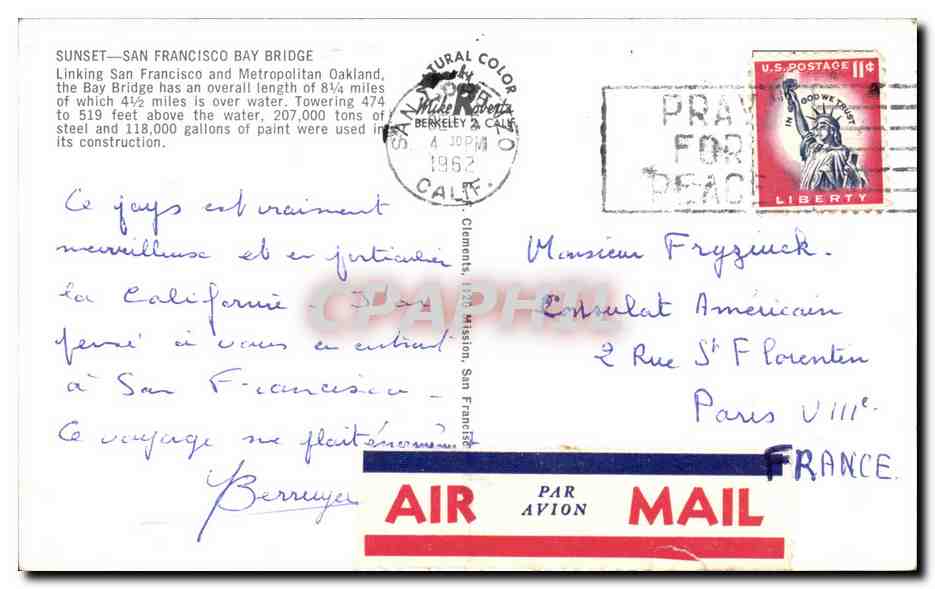 SUNSET—SAN FRANCISCO BAY BRIDGE
Linking San Francisco and Metropolitan Oakland,
the Bay Bridge has an overall length of 8¼ miles
of which 4½ miles is over water. Towering 474
to 519 feet above the water, 207,000 tons of
steel and 118,000 gallons of paint were used in
its construction.
NATURAL COLOR
by
Mike Roberts
BERKELEY 2, CALIF.
SAN LORENZO
4 30 PM
1962
CALIF.
PRAY
FOR
PEACE
U.S. POSTAGE 11¢
IN GOD WE TRUST
LIBERTY
Ce pays est vraiment
merveilleux et en particulier
la Californie.
pensé à vous en entrant
à San Francisco.
Ce voyage me plait énormément
Berruyer
Clements, 1120 Mission, San Francisc
Monsieur Fryziuck.
Consulat Américain
2 Rue St Florentin
Paris VIIIe.
FRANCE.
CPAPHIL
AIR PAR AVION MAIL